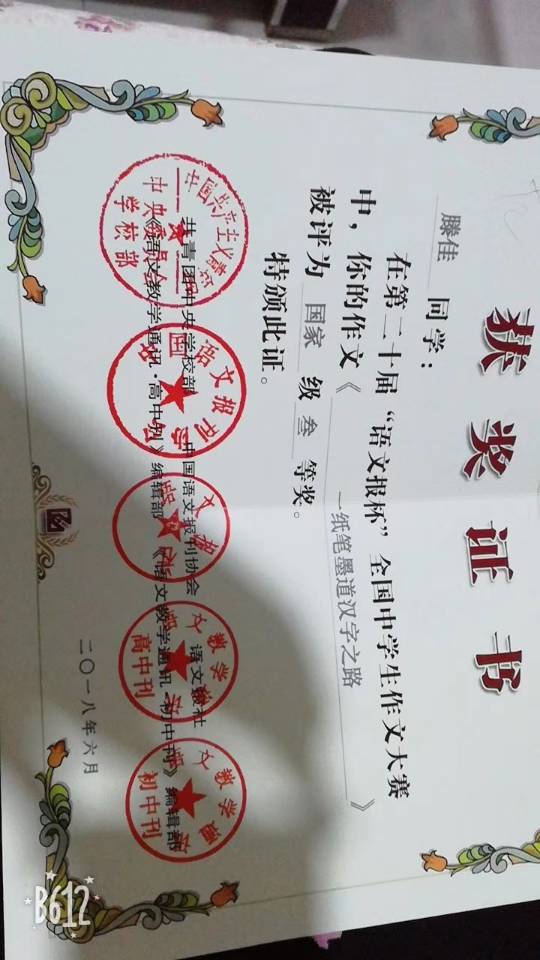 获奖证书
滕佳 同学：
在第二十届“语文报杯”全国中学生作文大赛
中，你的作文《一纸笔墨道汉字之路》
被评为 国家 级 叁 等奖。
特颁此证。
共青团中央学校部 中国语文报刊协会 语文报社
《语文教学通讯·高中刊》编辑部 《语文教学通讯·初中刊》编辑部
二〇一八年六月
中央委员会
学校部
高中刊
初中刊
B612